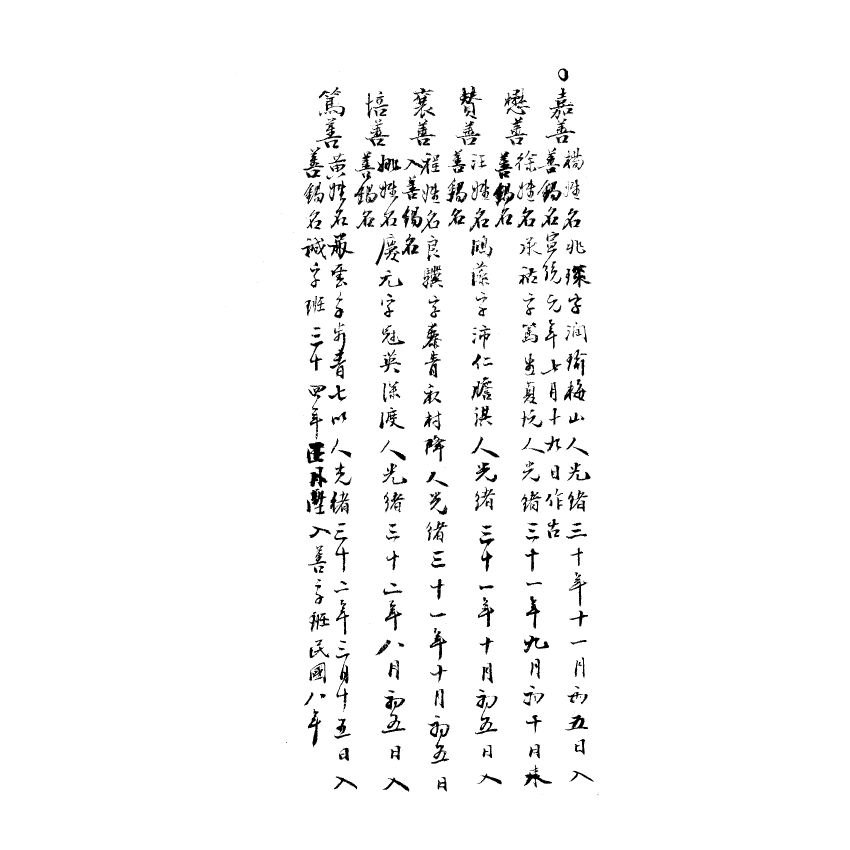 ○嘉善
楊姓名兆琛字潤瑜梅山人光緒三十年十一月初五日入
善錫名宣統元年七月十九日作古
懋善
徐姓名承祜字篤生夏阬人光緒三十一年九月初十日來
善錫名
贊善
汪姓名鴻藻字沛仁瞻淇人光緒三十一年十月初五日入
善錫名
襄善
程姓名良驥字青村降人光緒三十一年十月初五日
入善錫名
培善
姚姓名慶元字冠英深渡人光緒三十二年八月初五日入
善錫名
篤善
黃姓名雲字青七人光緒三十二年三月十五日入
善錫名誠字班三十四年月陞入善字班民國八年